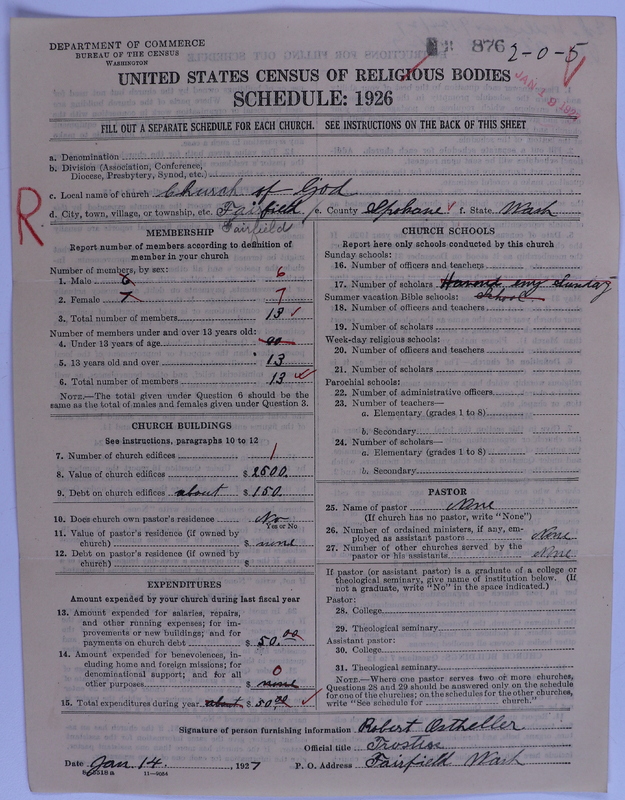 DEPARTMENT OF COMMERCE
BUREAU OF THE CENSUS
WASHINGTON
876 2-0-5
UNITED STATES CENSUS OF RELIGIOUS BODIES
SCHEDULE: 1926
FILL OUT A SEPARATE SCHEDULE FOR EACH CHURCH. SEE INSTRUCTIONS ON THE BACK OF THIS SHEET
a. Denomination
b. Division (Association, Conference,
Diocese, Presbytery, Synod, etc.)
c. Local name of church Church of God
d. City, town, village, or township, etc. Fairfield e. County Spokane f. State Wash
Fairfield
R
MEMBERSHIP
Report number of members according to definition of
member in your church
Number of members, by sex:
1. Male 6 6
2. Female 7 7
3. Total number of members 13
Number of members under and over 13 years old:
4. Under 13 years of age
5. 13 years old and over 13
6. Total number of members 13
NOTE.—The total given under Question 6 should be
same as the total of males and females given under Question 3.
CHURCH BUILDINGS
See instructions, paragraphs 10 to 12
7. Number of church edifices 1
8. Value of church edifices $ 2500.
9. Debt on church edifices about $ 150.
10. Does church own pastor's residence No
Yes or No
11. Value of pastor's residence (if owned by
church) $ none
12. Debt on pastor's residence (if owned by
church) $
EXPENDITURES
Amount expended by your church during last fiscal year
13. Amount expended for salaries, repairs,
and other running expenses; for im-
provements or new buildings; and for
payments on church debt $ 50.00
14. Amount expended for benevolences, in-
cluding home and foreign missions; for
denominational support; and for all
other purposes $ none 0
15. Total expenditures during year about $ 50.00
CHURCH SCHOOLS
Report here only schools conducted by this church
Sunday schools:
16. Number of officers and teachers
17. Number of scholars Havend eny Sunday
Summer vacation Bible schools: School
18. Number of officers and teachers
19. Number of scholars
Week-day religious schools:
20. Number of officers and teachers
21. Number of scholars
Parochial schools:
22. Number of administrative officers
23. Number of teachers—
a. Elementary (grades 1 to 8)
b. Secondary
24. Number of scholars—
a. Elementary (grades 1 to 8)
b. Secondary
PASTOR
25. Name of pastor None
(If church has no pastor, write "None")
26. Number of ordained ministers, if any, em-
ployed as assistant pastors None
27. Number of other churches served by the
pastor or his assistants None
If pastor (or assistant pastor) is a graduate of a college or
theological seminary, give name of institution below. (If
not a graduate, write "No" in the space indicated.)
Pastor:
28. College
29. Theological seminary
Assistant pastor:
30. College
31. Theological seminary
NOTE.—Where one pastor serves two or more churches,
Questions 28 and 29 should be answered only on the schedule
for one of the churches; on the schedules for the other churches,
write "See schedule for church."
Signature of person furnishing information Robert Ostheller
Official title Trostise
Date Jan 14, 1927 P. O. Address Fairfield Wash
11—9054